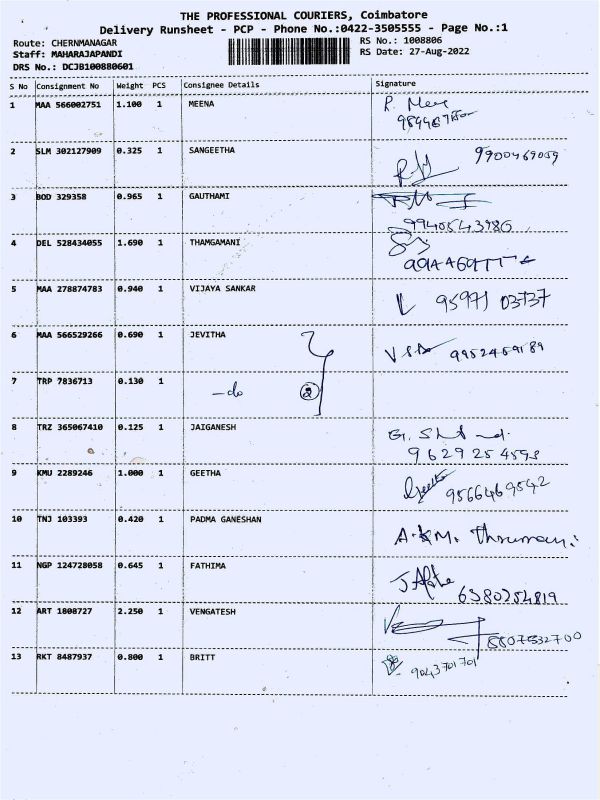 THE PROFESSIONAL COURIERS, Coimbatore
Delivery Runsheet - PCP - Phone No.:0422-3505555 - Page No.:1
Route: CHERNMANAGAR RS No.: 1008806
Staff: MAHARAJAPANDI RS Date: 27-Aug-2022
DRS No.: DCJB100880601
S No Consignment No Weight PCS Consignee Details Signature
1 MAA 566002751 1.100 1 MEENA
2 SLM 302127909 0.325 1 SANGEETHA 9900469059
3 BOD 329358 0.965 1 GAUTHAMI
9940543986
4 DEL 528434055 1.690 1 THAMGAMANI
5 MAA 278874783 0.940 1 VIJAYA SANKAR 95971 03737
6 MAA 566529266 0.690 1 JEVITHA 9952459189
7 TRP 7836713 0.130 1 -do 2
8 TRZ 365067410 0.125 1 JAIGANESH
9629254593
9 KMU 2289246 1.000 1 GEETHA Geetha 9566469542
10 TNJ 103393 0.420 1 PADMA GANESHAN A.K.M.
11 NGP 124728058 0.645 1 FATHIMA
6380254819
12 ART 1808727 2.250 1 VENGATESH
8807532700
13 RKT 8487937 0.800 1 BRITT 9043701701